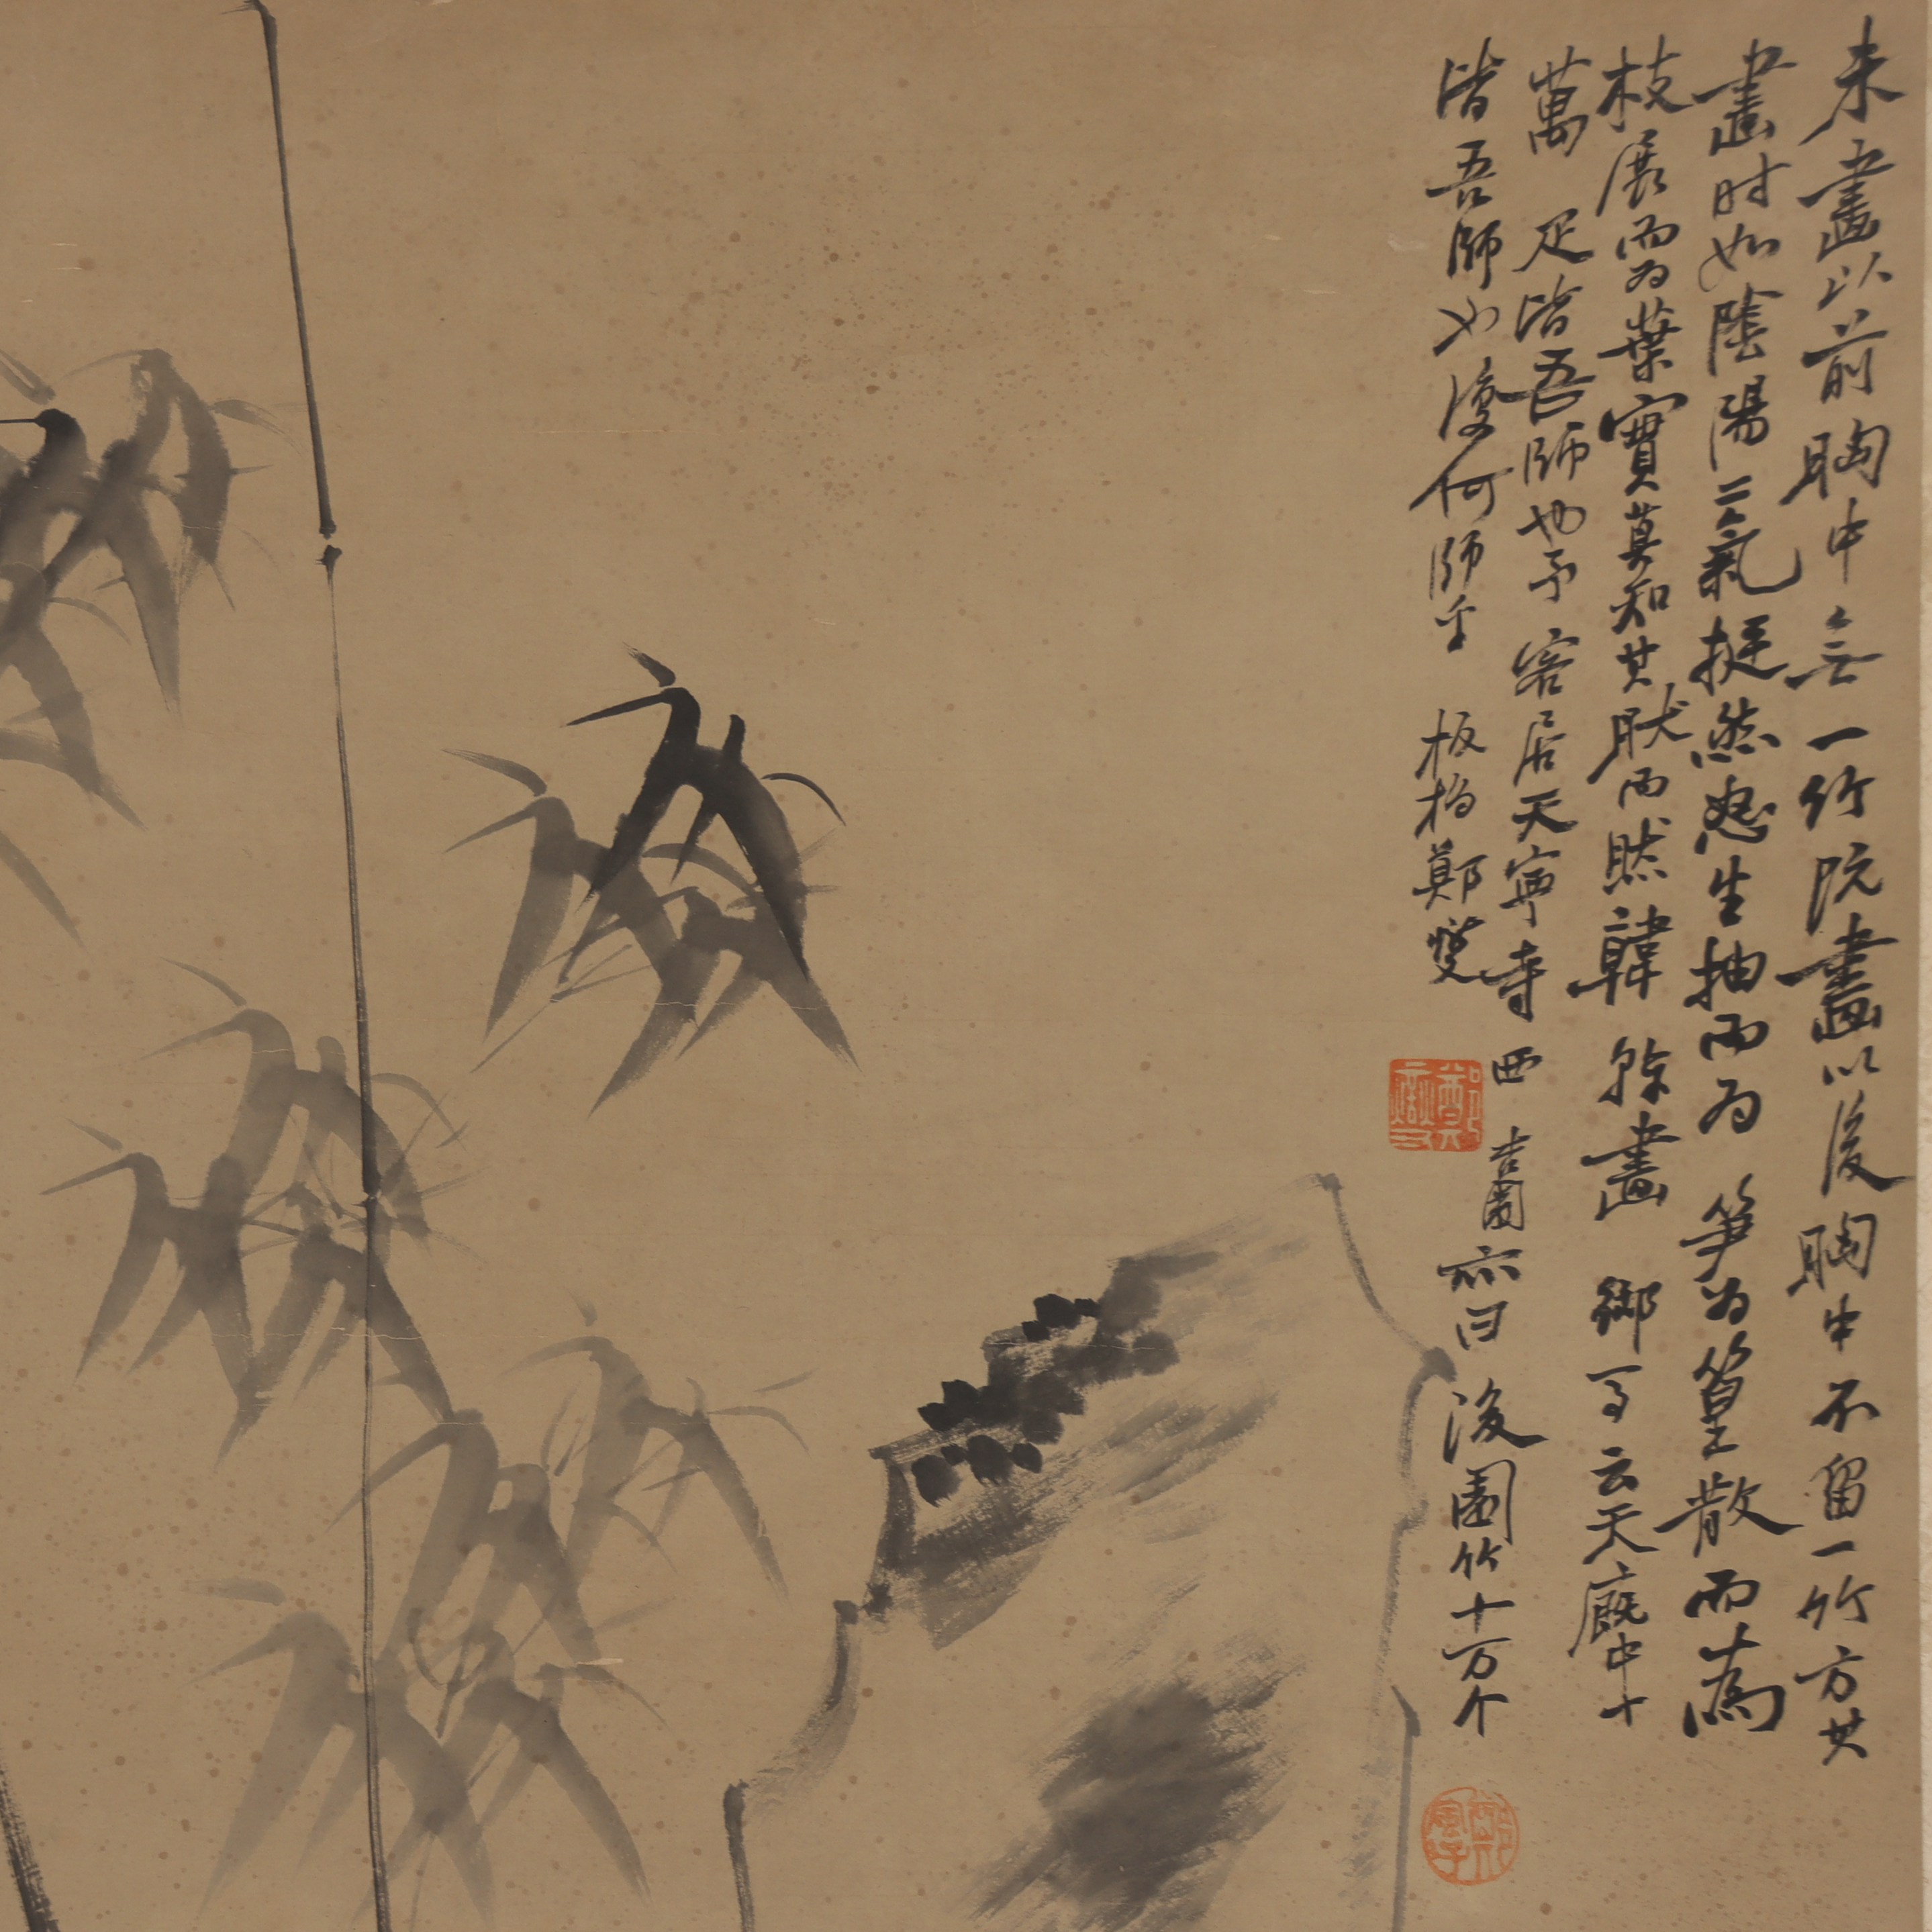 未畫以前胸中無一竹既畫以後胸中不留一竹方其
畫时如陰陽二氣挺然怒生抽而为笋为篁散而為
枝展而为葉實莫知其肰而肰韓幹畫御馬云天廐中十
萬疋皆吾師也予客居天寧寺西杏園亦曰後園竹十万个
皆吾師也復何師乎 板橋鄭燮
鄭燮
鄭風子